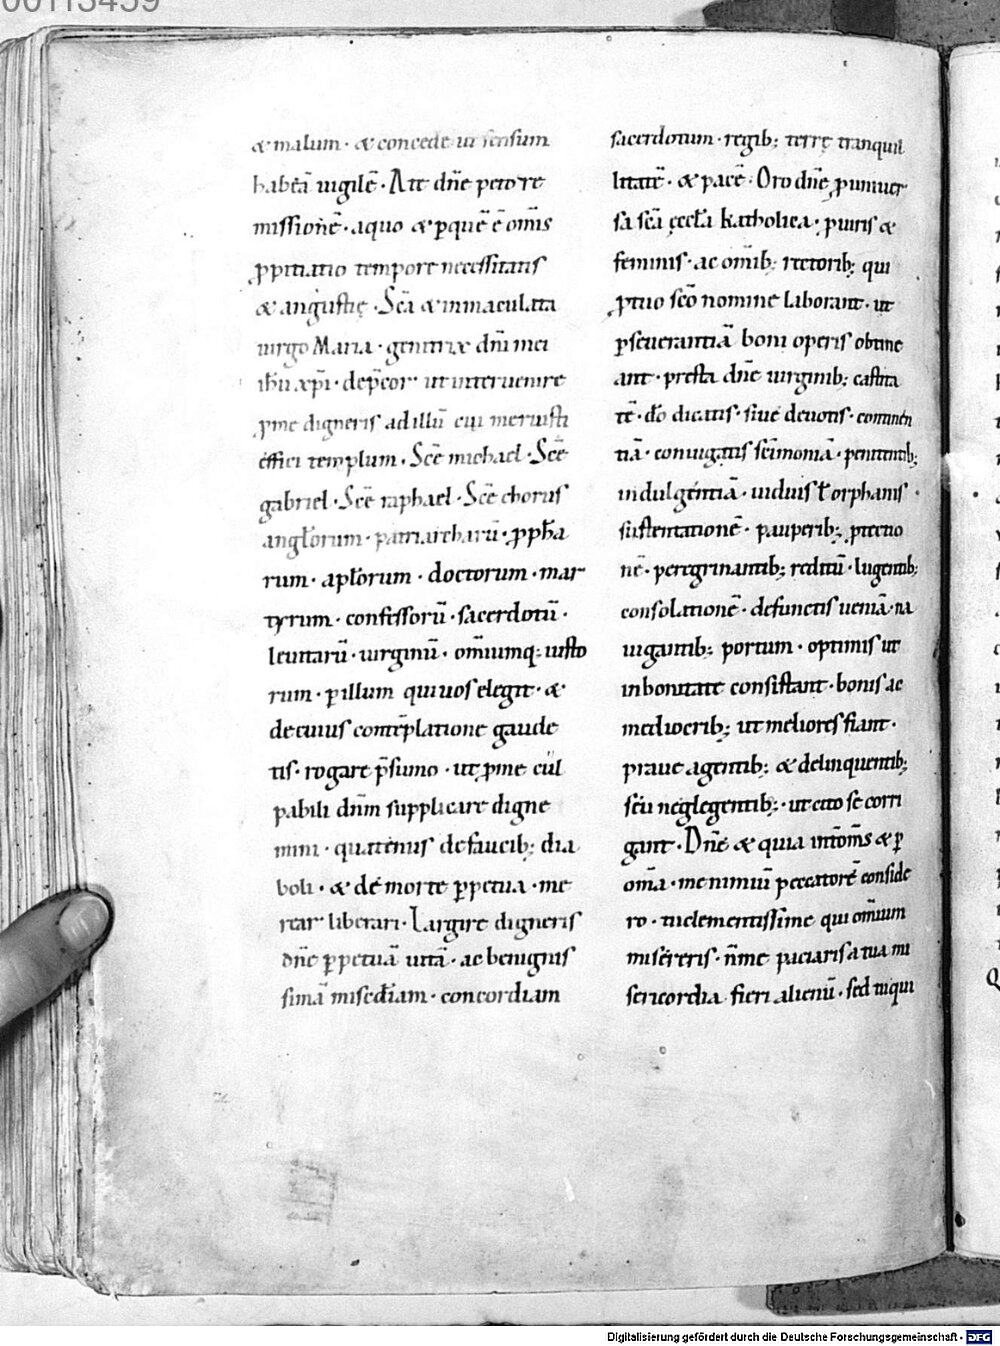 00113459
& malum · & concede ut sensum
habeā uigilē · At te dn̄e peto re
missionē · a quo & p quē ē om̄s
ꝓpitiatio tempore necessitatis
& angustię · Scā & inmaculata
uirgo Maria · genitrix dn̄i mei
ih̄u xp̄i · dep̄cor ut interuenire
ꝓ me digneris ad illū cui meruisti
effici templum · Scē michael · Scē
gabriel · Scē raphael · Scē chorus
angłorum · patriarcharū · ꝓpha
rum · apłorum · doctorum · mar
tyrum · confessorū · sacerdotū ·
leuitarū · uirginū · om̄iumq; iusto
rum · ꝑ illum qui uos elegit · &
de cuius contēplatione gaude
tis · rogare p̄sumo · ut ꝓ me cul
pabili dn̄m supplicare digne
mini · quatenus de faucib; dia
boli · & de morte ꝑpetua · me
rear liberari · Largire digneris
dn̄e ꝑpetuā uitā · ac benignis
simā mis̄ediam · concordiam
sacerdotum · regib; terrę tranquil
litatē · & pacē · Oro dn̄e ꝓ uniuer
sa scā ęccła katholica · ꝓ uiris &
feminis · ac om̄ib; rectorib; qui
ꝓ tuo scō nomine laborant · ut
ꝑseuerantiā boni operis obtine
ant · presta dn̄e uirginib; castita
tē · dō dicatis · siue deuotis · continen
tiā · coniugatis scīmoniā · penitentib;
indulgentiā · uiduis ł orphanis ·
sustentationē · pauperib; ꝓtectio
nē · peregrinantib; reditū · lugentib;
consolationē · defunctis ueniā · na
uigantib; portum · optimis ut
in bonitate consistant · bonis ac
mediocrib; ut meliores fiant ·
praue agentib; & delinquentib;
seu neglegentib; · ut cito se corri
gant · Dn̄e & quia int om̄s & ꝑ
om̄a · me nimiū peccatorē conside
ro · tu clementissime qui om̄ium
misereris · n̄ me paciaris a tua mi
sericordia fieri alienū · sed tu qui
Digitalisierung gefördert durch die Deutsche Forschungsgemeinschaft - DFG